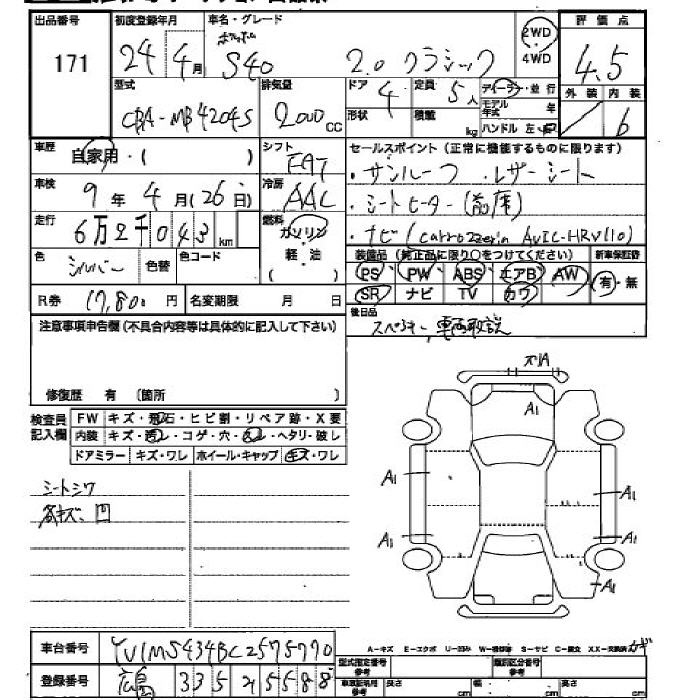 出品番号 初度登録年月 車名・グレード 2WD 評価点
171 24年 4月 S40 2.0 クラシック ・4WD 4.5
型式 排気量 ドア 定員 ディーラー・並行 外装 内装
CBA-MB4204S 2000cc 4 5人 モデル年式 年 6
形状 積載 kg ハンドル 左・右
車歴 シフト セールスポイント(正常に機能するものに限ります)
自家用・( ) FAT ・サンルーフ ・レザーシート
車検 冷房 ・シートヒーター(前席)
9年 4月(26日) AAC
走行 燃料 ・ナビ(carrozzeria AVIC-HRV110)
6万2千043km ガソリン
軽・油
( )
色 シルバー 色替 色コード 装備品(純正品に限り○をつけてください) 新車保証書
PS PW ABS エアB AW 有・無
R券 17,800円 名変期限 月 日 SR ナビ TV カワ
注意事項申告欄(不具合内容等は具体的に記入して下さい) 後日品
スペアキー、車両取説
修復歴 有 〔箇所 〕
検査員記入欄 FW キズ・飛石・ヒビ割・リペア跡・X要
内装 キズ・汚レ・コゲ・穴・スレ・ヘタリ・破レ
ドアミラー キズ・ワレ ホイール・キャップ キズ・ワレ
シートシワ
A1
A1 A1
A1 A1
A1
A-キズ E-エクボ U-凹み W-補修跡 S-サビ C-腐食 XX-交換済
車台番号 YV1MS434BC2575770
型式指定番号 参考 類別区分番号 参考
登録番号 広島 335 2 5588
車庫証明用 参考 長さ cm 幅 cm 高さ cm